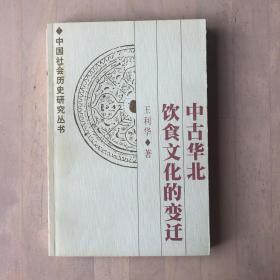 ◆中国社会历史研究丛书
中古华北
饮食文化的变迁
王利华◆著